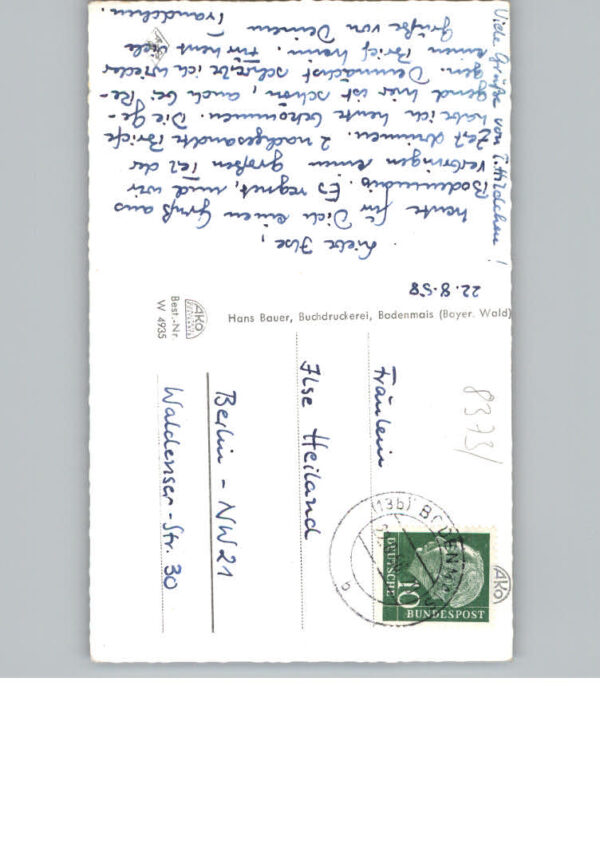 22.8.58
Liebe Ilse,
heute für Dich einen Gruß aus
Bodenmais. Es regnet, und wir
verbringen einen großen Teil der
Zeit drinnen. 2 nachgesandte Briefe
habe ich heute bekommen. Die Ge-
gend hier ist schön, auch bei Re-
gen. Demnächst schreibe ich wieder
einen Brief. Für heut viele
Grüße von Deinem
Frändchen.
Viele Grüße von T. Hildchen!
Hans Bauer, Buchdruckerei, Bodenmais (Bayer. Wald)
AKO
Best.-Nr.
W 4935
8373/
Fräulein
Ilse Heiland
Berlin - NW 21
Waldenser-Str. 30
(13b) BODENMAIS
b
DEUTSCHE
10
BUNDESPOST
AKO